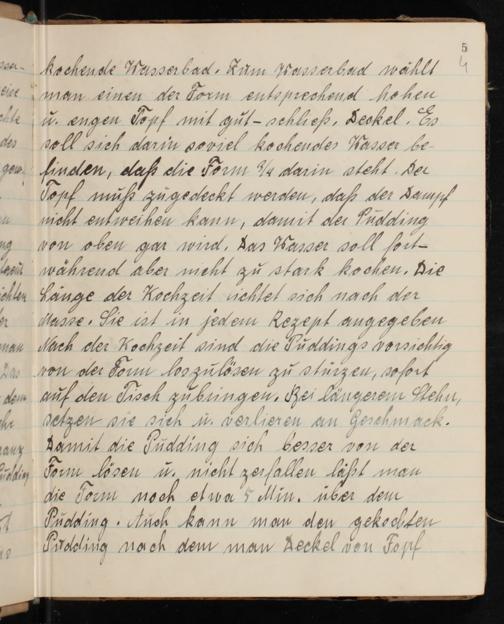 5
4
kochende Wasserbad. Zum Wasserbad wählt
man einen der Form entsprechend hohen
u. engen Topf mit gut-schließ. Deckel. Es
soll sich darin soviel kochendes Wasser be-
finden, daß die Form ¾ darin steht. Der
Topf muß zugedeckt werden, daß der Dampf
nicht entweihen kann, damit der Pudding
von oben gar wird. Das Wasser soll fort-
während aber nicht zu stark kochen. Die
Länge der Kochzeit richtet sich nach der
Masse. Sie ist in jedem Rezept angegeben
Nach der Kochzeit sind die Puddings vorsichtig
von der Form loszulösen zu stürzen, sofort
auf den Tisch zubringen. Bei längerem Stehn,
setzen sie sich u. verlieren an Geschmack.
Damit die Pudding sich besser von der
Form lösen u. nicht zerfallen läßt man
die Form noch etwa 5 Min. über dem
Pudding. Auch kann man den gekochten
Pudding nach dem man Deckel von Topf